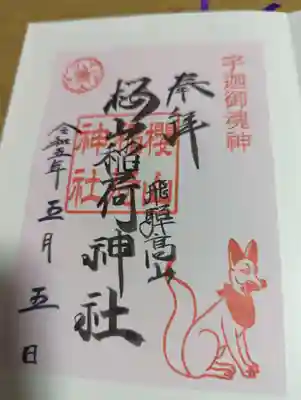 宇迦御魂神
奉拝
飛騨高山
桜山稲荷神社
櫻山
稲荷
神社
令和五年 五月 五日